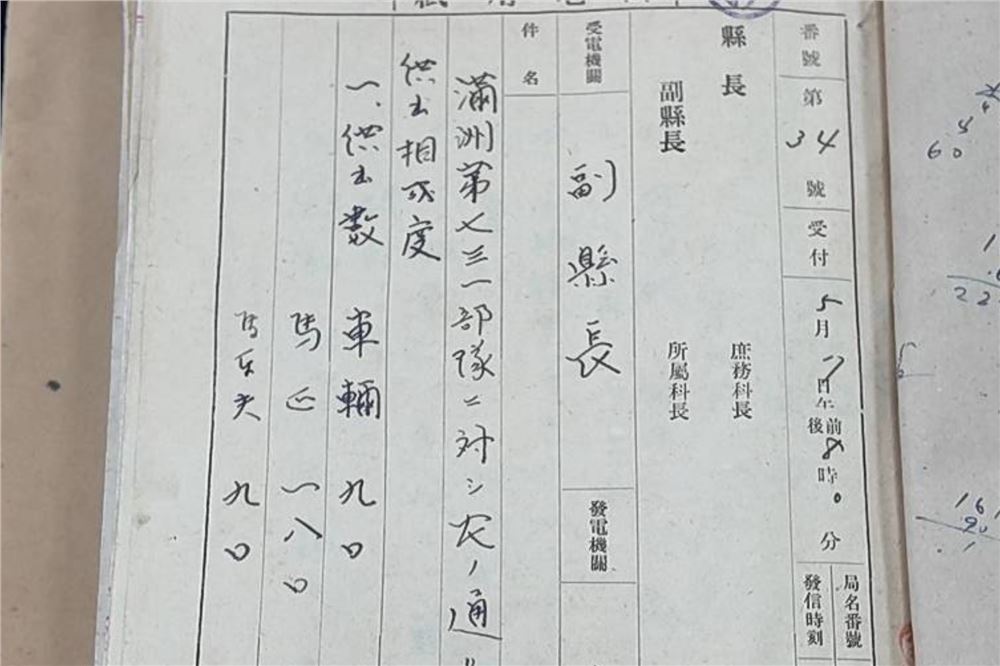 番號 第 34 號 受付 5月 日午前後8時0分
局名番號
發信時刻
縣長 庶務科長
副縣長 所屬科長
受電機關 副縣長 發電機關
件名
滿洲第七三一部隊ニ対シ次ノ通
供出相成度
一、供出数 車輛 九〇
馬匹 一八〇
馬車夫 九〇
60